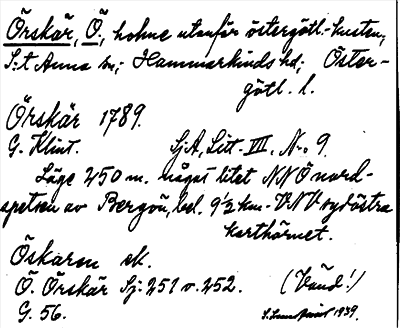 Örskär, Ö., holme utanför östergötl.-kusten,
S:t Anna sn; Hammarkinds hd; Öster-
götl. l.
Örskär 1789.
G. Klint. SjA, Litt. VIII, Nr. 9.
Läge 250 m. något litet NNÖ nord-
spetsen av Bergön, bel. 9½ km. VNV sydöstra
karthörnet.
Öskaren ek.
Ö. Örskär Sj: 251 o. 252. (Vänd!)
G. 56. 1939.